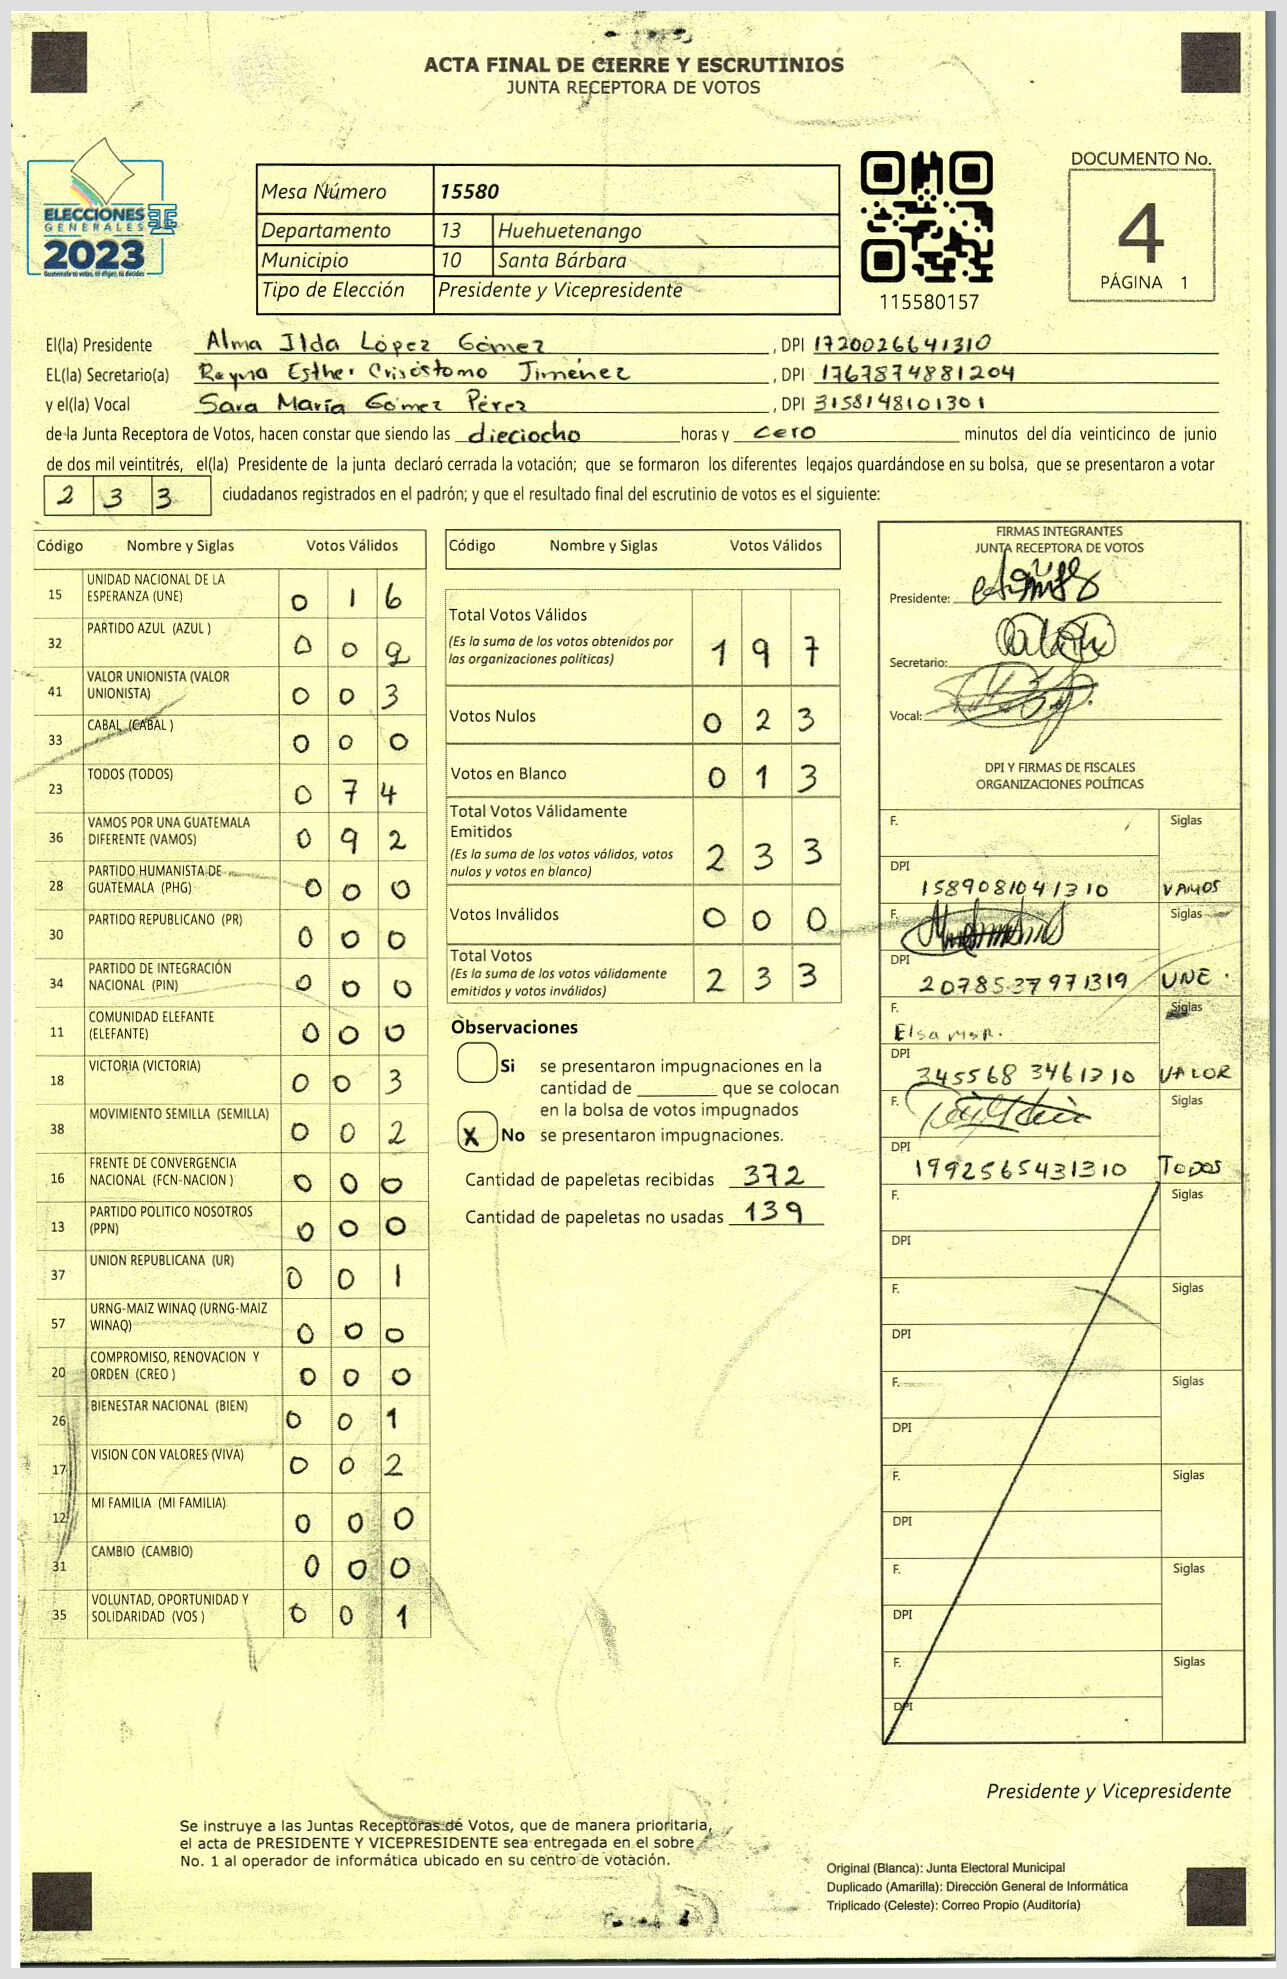 ACTA FINAL DE CIERRE Y ESCRUTINIOS
JUNTA RECEPTORA DE VOTOS
ELECCIONES
GENERALES
2023
Guatemala tu votas, tú eliges, tú decides
Mesa Número 15580
Departamento 13 Huehuetenango
Municipio 10 Santa Bárbara
Tipo de Elección Presidente y Vicepresidente
115580157
DOCUMENTO No.
4
PÁGINA 1
El(la) Presidente Alma Ilda López Gómez, DPI 1720026641310
EL(la) Secretario(a) Reyna Esther Crisóstomo Jiménez, DPI 1767874881204
y el(la) Vocal Sara María Gómez Pérez, DPI 3158148101301
de la Junta Receptora de Votos, hacen constar que siendo las dieciocho horas y cero minutos del día veinticinco de junio
de dos mil veintitrés, el(la) Presidente de la junta declaró cerrada la votación; que se formaron los diferentes legajos guardándose en su bolsa, que se presentaron a votar
2 3 3 ciudadanos registrados en el padrón; y que el resultado final del escrutinio de votos es el siguiente:
Código Nombre y Siglas Votos Válidos
15 UNIDAD NACIONAL DE LA
ESPERANZA (UNE) 0 1 6
32 PARTIDO AZUL (AZUL ) 0 0 2
41 VALOR UNIONISTA (VALOR
UNIONISTA) 0 0 3
33 CABAL (CABAL ) 0 0 0
23 TODOS (TODOS) 0 7 4
36 VAMOS POR UNA GUATEMALA
DIFERENTE (VAMOS) 0 9 2
28 PARTIDO HUMANISTA DE
GUATEMALA (PHG) 0 0 0
30 PARTIDO REPUBLICANO (PR) 0 0 0
34 PARTIDO DE INTEGRACIÓN
NACIONAL (PIN) 0 0 0
11 COMUNIDAD ELEFANTE
(ELEFANTE) 0 0 0
18 VICTORIA (VICTORIA) 0 0 3
38 MOVIMIENTO SEMILLA (SEMILLA) 0 0 2
16 FRENTE DE CONVERGENCIA
NACIONAL (FCN-NACION ) 0 0 0
13 PARTIDO POLITICO NOSOTROS
(PPN) 0 0 0
37 UNION REPUBLICANA (UR) 0 0 1
57 URNG-MAIZ WINAQ (URNG-MAIZ
WINAQ) 0 0 0
20 COMPROMISO, RENOVACION Y
ORDEN (CREO ) 0 0 0
26 BIENESTAR NACIONAL (BIEN) 0 0 1
17 VISION CON VALORES (VIVA) 0 0 2
12 MI FAMILIA (MI FAMILIA) 0 0 0
31 CAMBIO (CAMBIO) 0 0 0
35 VOLUNTAD, OPORTUNIDAD Y
SOLIDARIDAD (VOS ) 0 0 1
Código Nombre y Siglas Votos Válidos
Total Votos Válidos
(Es la suma de los votos obtenidos por
las organizaciones políticas) 1 9 7
Votos Nulos 0 2 3
Votos en Blanco 0 1 3
Total Votos Válidamente
Emitidos
(Es la suma de los votos válidos, votos
nulos y votos en blanco) 2 3 3
Votos Inválidos 0 0 0
Total Votos
(Es la suma de los votos válidamente
emitidos y votos inválidos) 2 3 3
Observaciones
Si se presentaron impugnaciones en la
cantidad de ________ que se colocan
en la bolsa de votos impugnados
X No se presentaron impugnaciones.
Cantidad de papeletas recibidas 372
Cantidad de papeletas no usadas 139
FIRMAS INTEGRANTES
JUNTA RECEPTORA DE VOTOS
Presidente:
Secretario:
Vocal:
DPI Y FIRMAS DE FISCALES
ORGANIZACIONES POLÍTICAS
F. Siglas
DPI
1589081041310 VAMOS
F. Siglas
DPI
2078537971319 UNE
F. Siglas
Elsa
DPI
3455683461310 VALOR
F. Siglas
DPI
1992565431310 TODOS
F. Siglas
DPI
F. Siglas
DPI
F. Siglas
DPI
F. Siglas
DPI
F. Siglas
DPI
F. Siglas
DPI
Presidente y Vicepresidente
Se instruye a las Juntas Receptoras de Votos, que de manera prioritaria,
el acta de PRESIDENTE Y VICEPRESIDENTE sea entregada en el sobre
No. 1 al operador de informática ubicado en su centro de votación.
Original (Blanca): Junta Electoral Municipal
Duplicado (Amarilla): Dirección General de Informática
Triplicado (Celeste): Correo Propio (Auditoría)